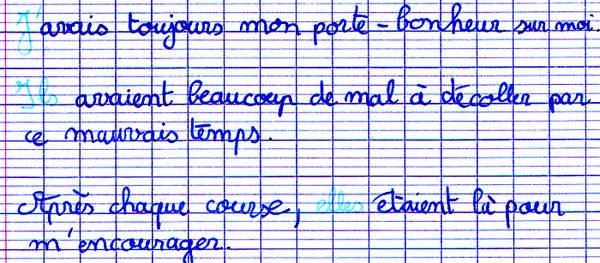 J'avais toujours mon porte-bonheur sur moi.
Ils avaient beaucoup de mal à décoller par
ce mauvais temps.
Après chaque course, elles étaient là pour
m'encourager.